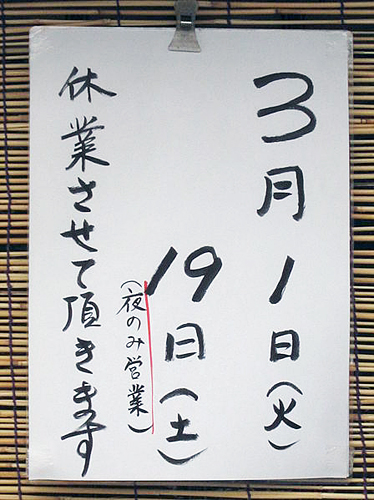 3月1日(火)
19日(土)
(夜のみ営業)
休業させて頂きます